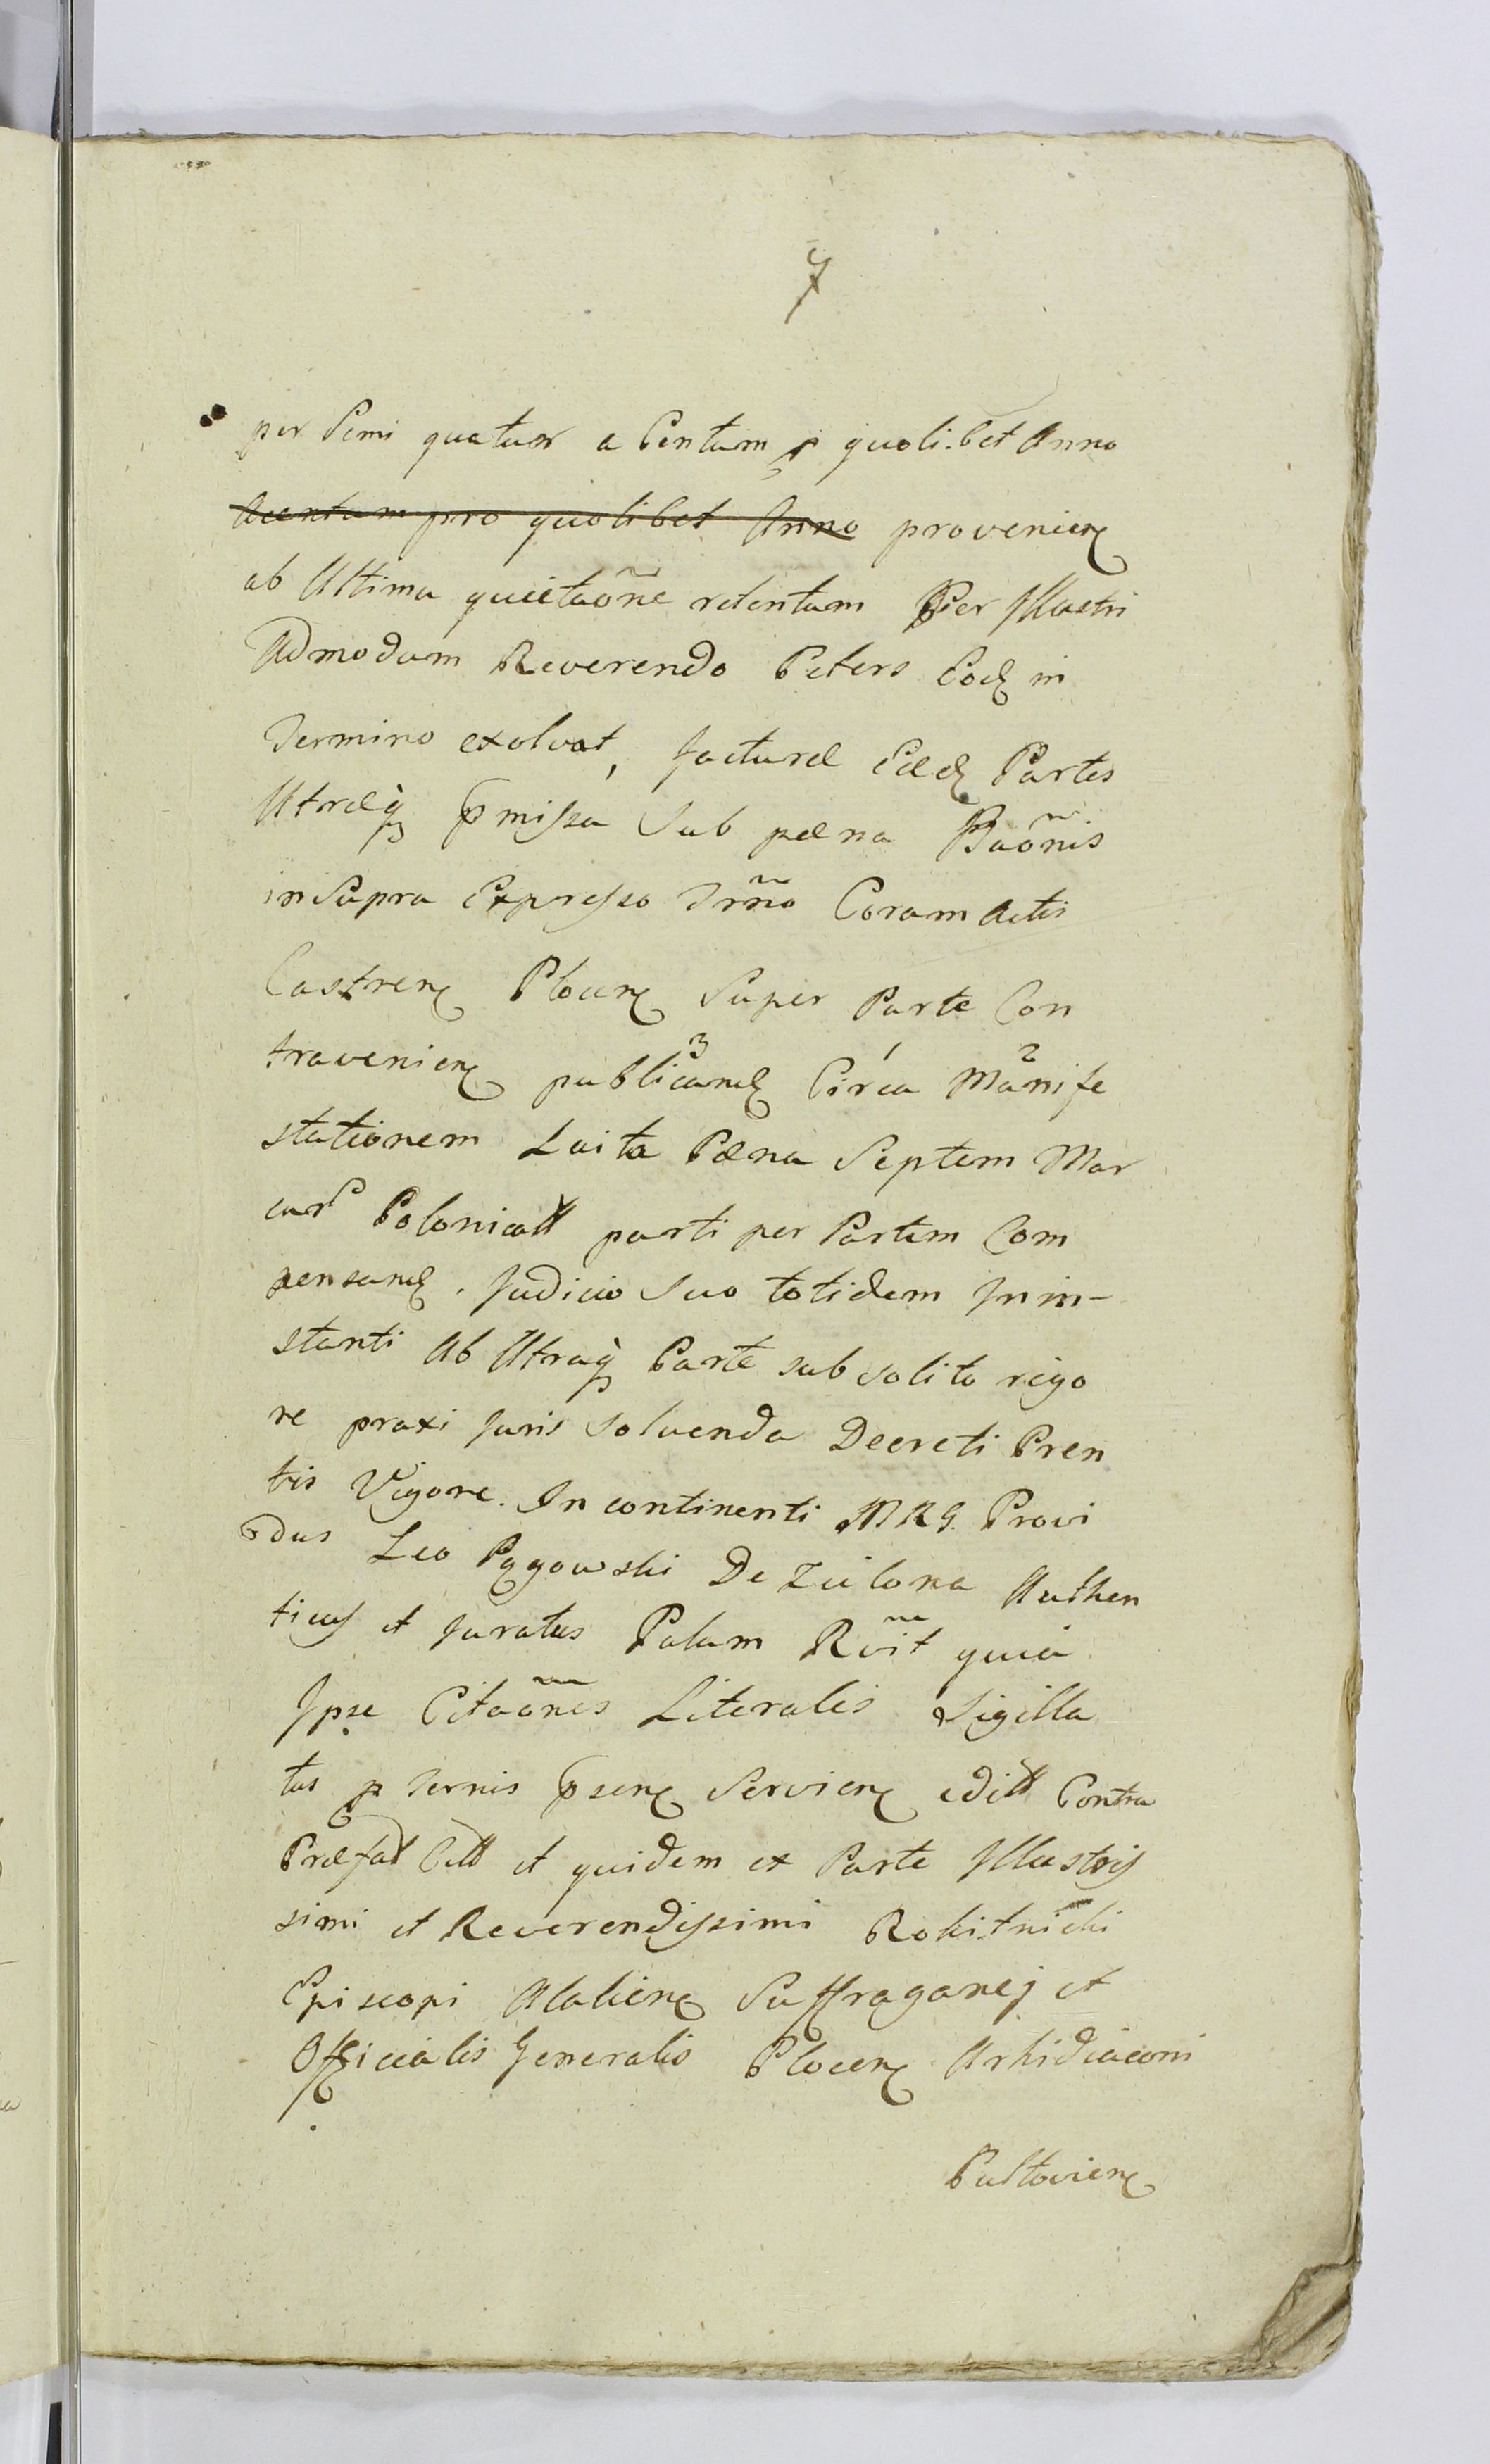 7
per Semi quatuor a Centum p quolibet Anno
Acentum pro quolibet Anno provenien
ab Ultima quietaõne retentam Per Illustri
Admodum Reverendo Peters Eod in
Termino exolvat, facturæ Eæd Partes
Utræq pmissa Sub pæna Baõnis
in Supra Expresso Trno Coram Actis
Castren Plocen Super Parte Con
travenien publicand Circa Manife
stationem Luita Pæna Septem Mar
car Polonicall parti per Partem Com
pensand. Judicio Suo totidem In in-
stanti Ab Utraq Parte sub solito rigo
re praxi Juris Solvenda Decreti Pren
tis Vigore. In continenti MRG. Provi
dus Leo Pągowski De Zielona Authen
ticus et Juratus Palam Rvit quia
Ipse Citaõnes Literales Sigilla
tas p Ternis psen Servien edill Contra
Præfat Citt et quidem ex Parte Illustris
simi et Reverendissimi Rokitnicki
Episcopi Alalien Suffraganej et
Officialis Generalis Plocen Arhidiaconi
Pultovien